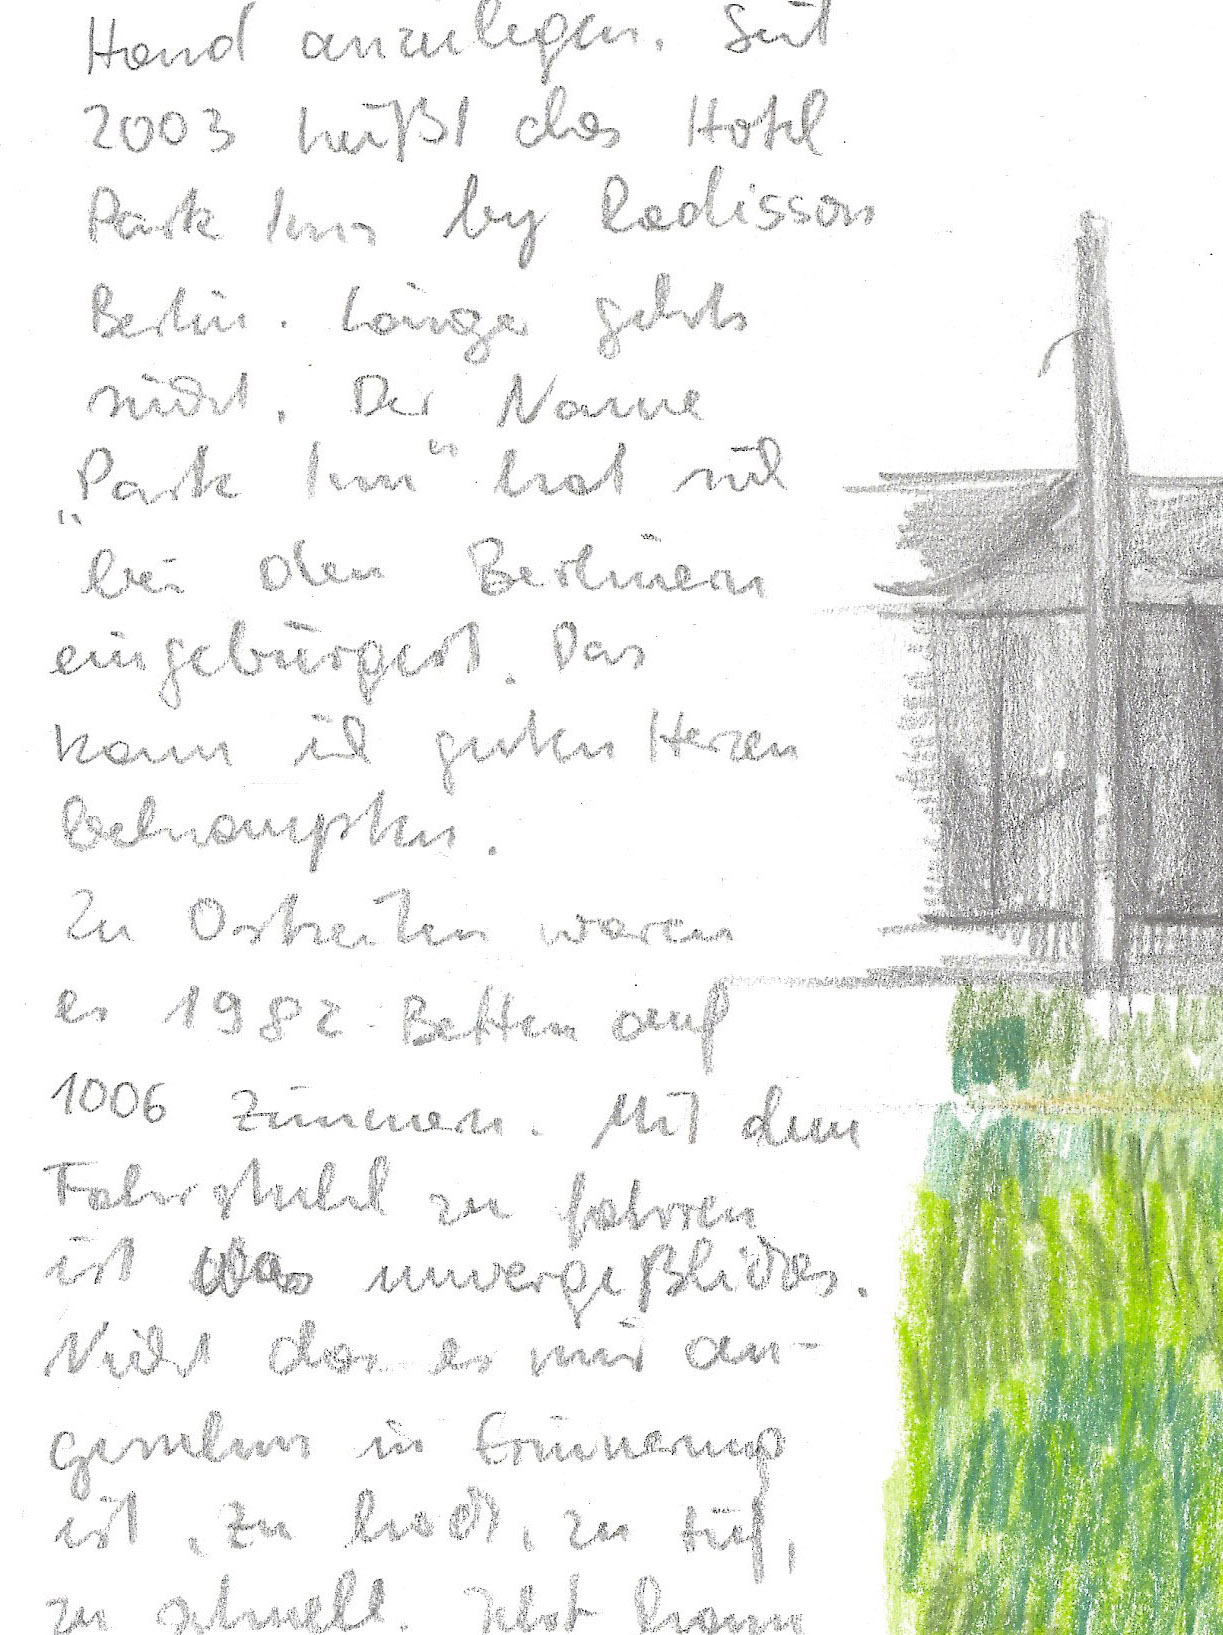 Hand anzulegen. Seit
2003 heißt das Hotel
Park Inn by Radisson
Berlin. Länger gehts
nicht. Der Name
„Park Inn“ hat sich
bei den Berlinern
eingebürgert. Das
kann ich guten Herzen
behaupten.
Zu Ostzeiten waren
es 1982 Betten auf
1006 Zimmern. Mit dem
Fahrstuhl zu fahren
ist was unvergeßliches.
Nicht das es mir an-
genehm in Erinnerung
ist, zu hoch, zu tief,
zu schnell. Jetzt kann